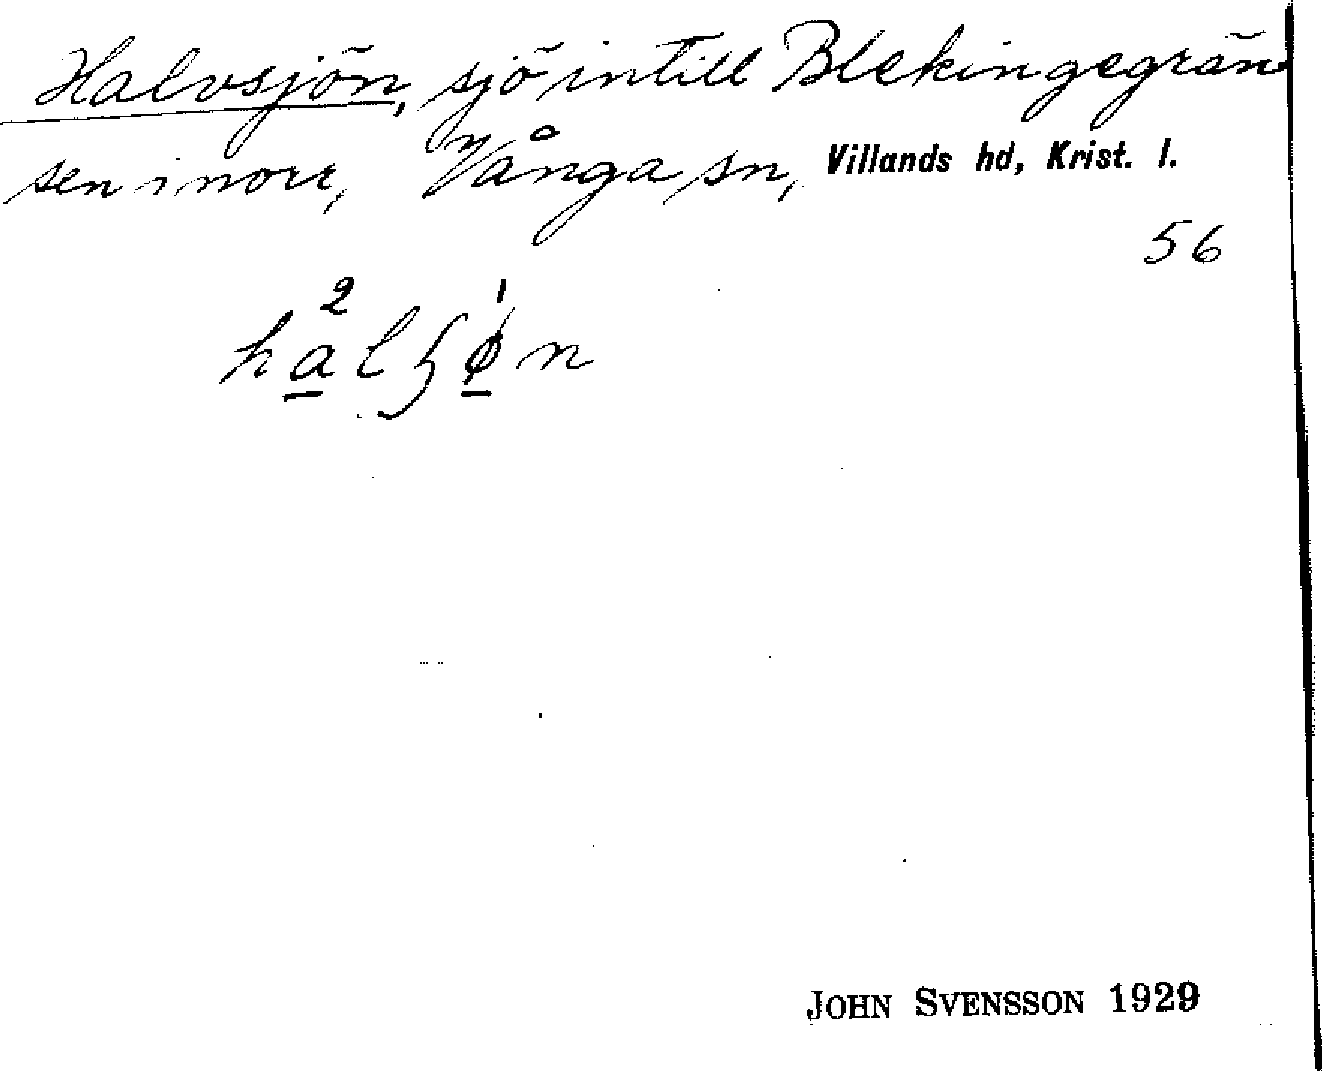 Halvsjön, sjö intill Blekingegrän
sen i norr, Vånga sn, Villands hd, Krist. l.
56
JOHN SVENSSON 1929